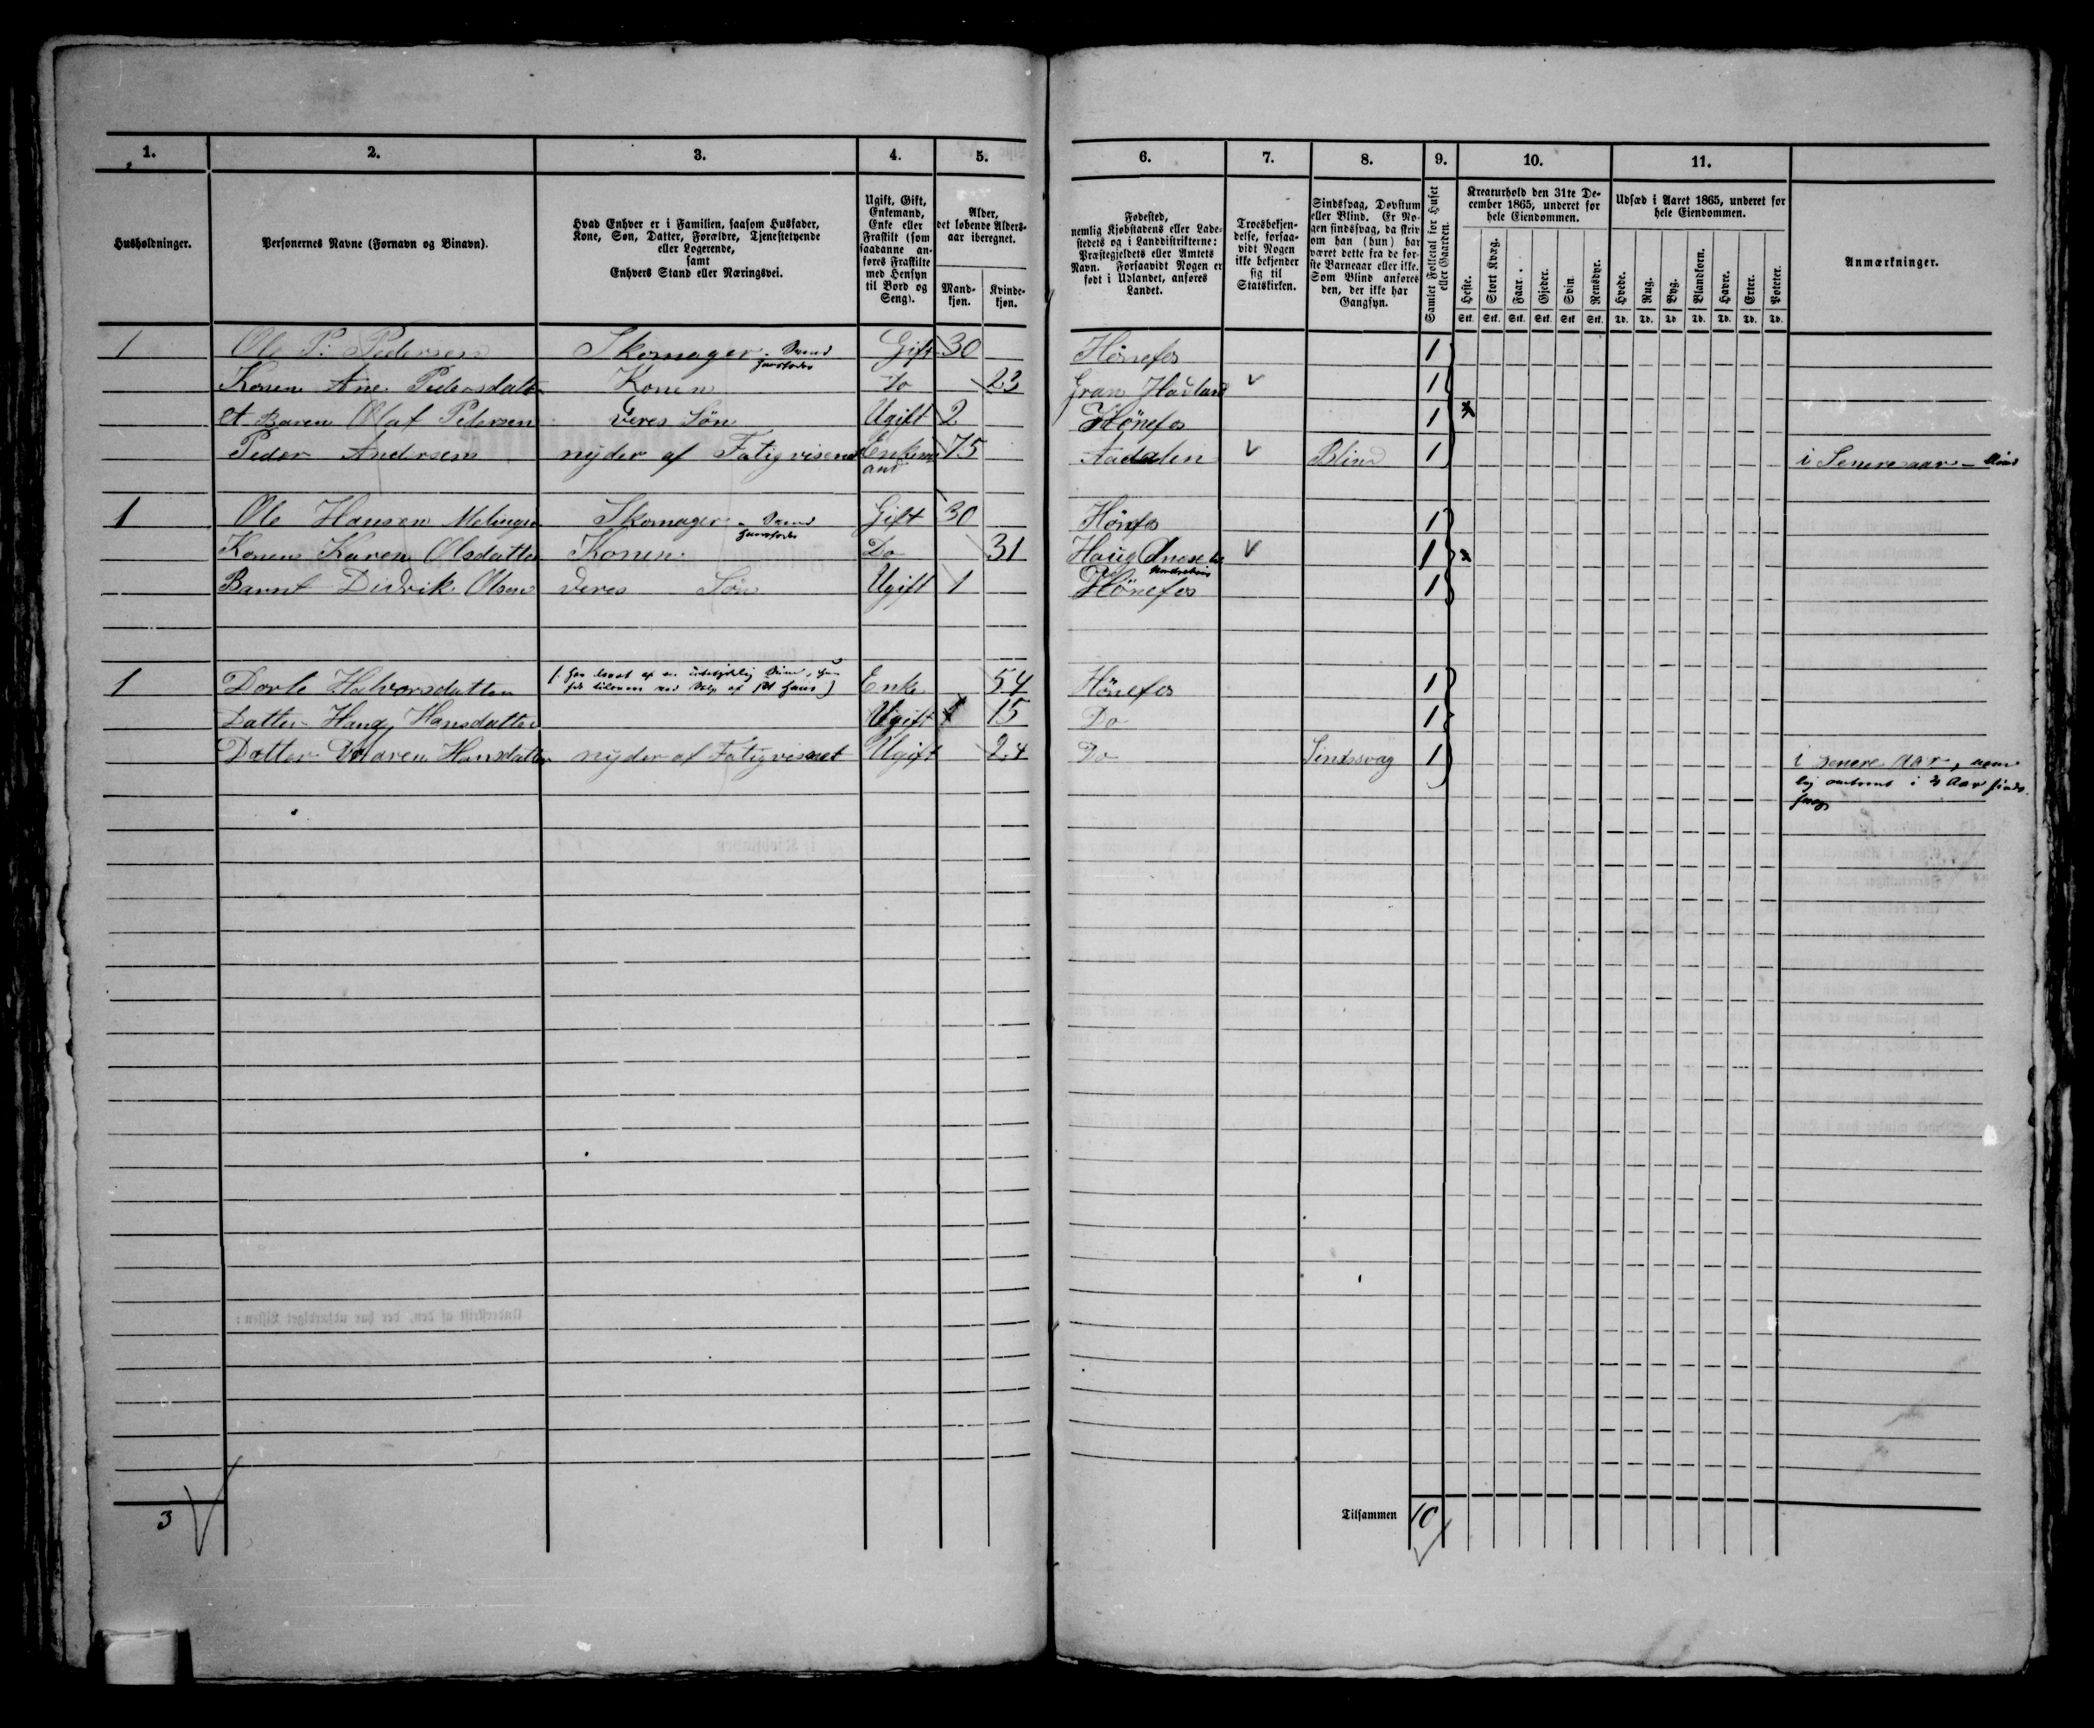 1. 2. 3. 4. 5. 6. 7. 8. 9. 10. 11.
Husholdninger.
Personernes Navne (Fornavn og Binavn).
Hvad Enhver er i Familien, saasom Husfader,
Kone, Søn, Datter, Forældre, Tjenestetyende
eller Logerende,
samt
Enhvers Stand eller Næringsvei.
Ugift, Gift,
Enkemand,
Enke eller
Fraskilt (som
saadanne an-
føres Fraskilte
med Hensyn
til Bord og
Seng).
Alder,
det løbende Alders-
aar iberegnet.
Mand-
kjøn.
Kvinde-
kjøn.
Fødested,
nemlig Kjøbstadens eller Lade-
stedets og i Landdistrikterne:
Præstegjeldets eller Amtets
Navn. Forsaavidt Nogen er
født i Udlandet, anføres
Landet.
Troesbekjen-
delse, forsaa-
vidt Nogen
ikke bekjender
sig til
Statskirken.
Sindssvag, Døvstum
eller Blind. Er No-
gen sindssvag, da skriv
om han (hun) har
været dette fra de før-
ste Barneaar eller ikke.
Som Blind anføres
den, der ikke har
Gangsyn.
Samlet Folketal for Huset
eller Gaarden.
Kreaturhold den 31te De-
cember 1865, underet for
hele Eiendommen.
Heste. Stort Kvæg. Faar. Gjeder. Svin Rensdyr.
Stk. Stk. Stk. Stk. Stk Stk.
Udsæd i Aaret 1865, underet for
hele Eiendommen.
Hvede. Rug. Byg. Blandkorn. Havre. Erter. Poteter.
Td. Td. Td Td. Td. Td. Td.
Anmærkninger.
1 Ole P. Pedersen Skomager Gift 30 Hönefos 1
Konen Ane Pedersdatt Konen Do 23 Gran Hadland 1
et Baren Olaf Pedersen deres Søn Ugift 2 Hönefos 1
Peder Andersen nyder af Fatigvisenet Enkem 75 Aadalen Blind 1 i Senere aar
and
1 Ole Hansen Skomager Gift 30 Hönefos 1
Konen Karen Olsdatter Konen Do 31 Haug 1
Barnt Didrik Olsen deres Søn Ugift 1 Hönefos 1
1 Dorte Halvorsdatter Enke 54 Hönefos 1
Datter Hansdatter Ugift 15 Do 1
Datter Maren Hansdatter nyder af Fatigvisnet Ugift 24 Do Sindssvag 1 i senere Aar, nem
lig omtrent i 3 Aar sinds
svag
3
Tilsammen 10